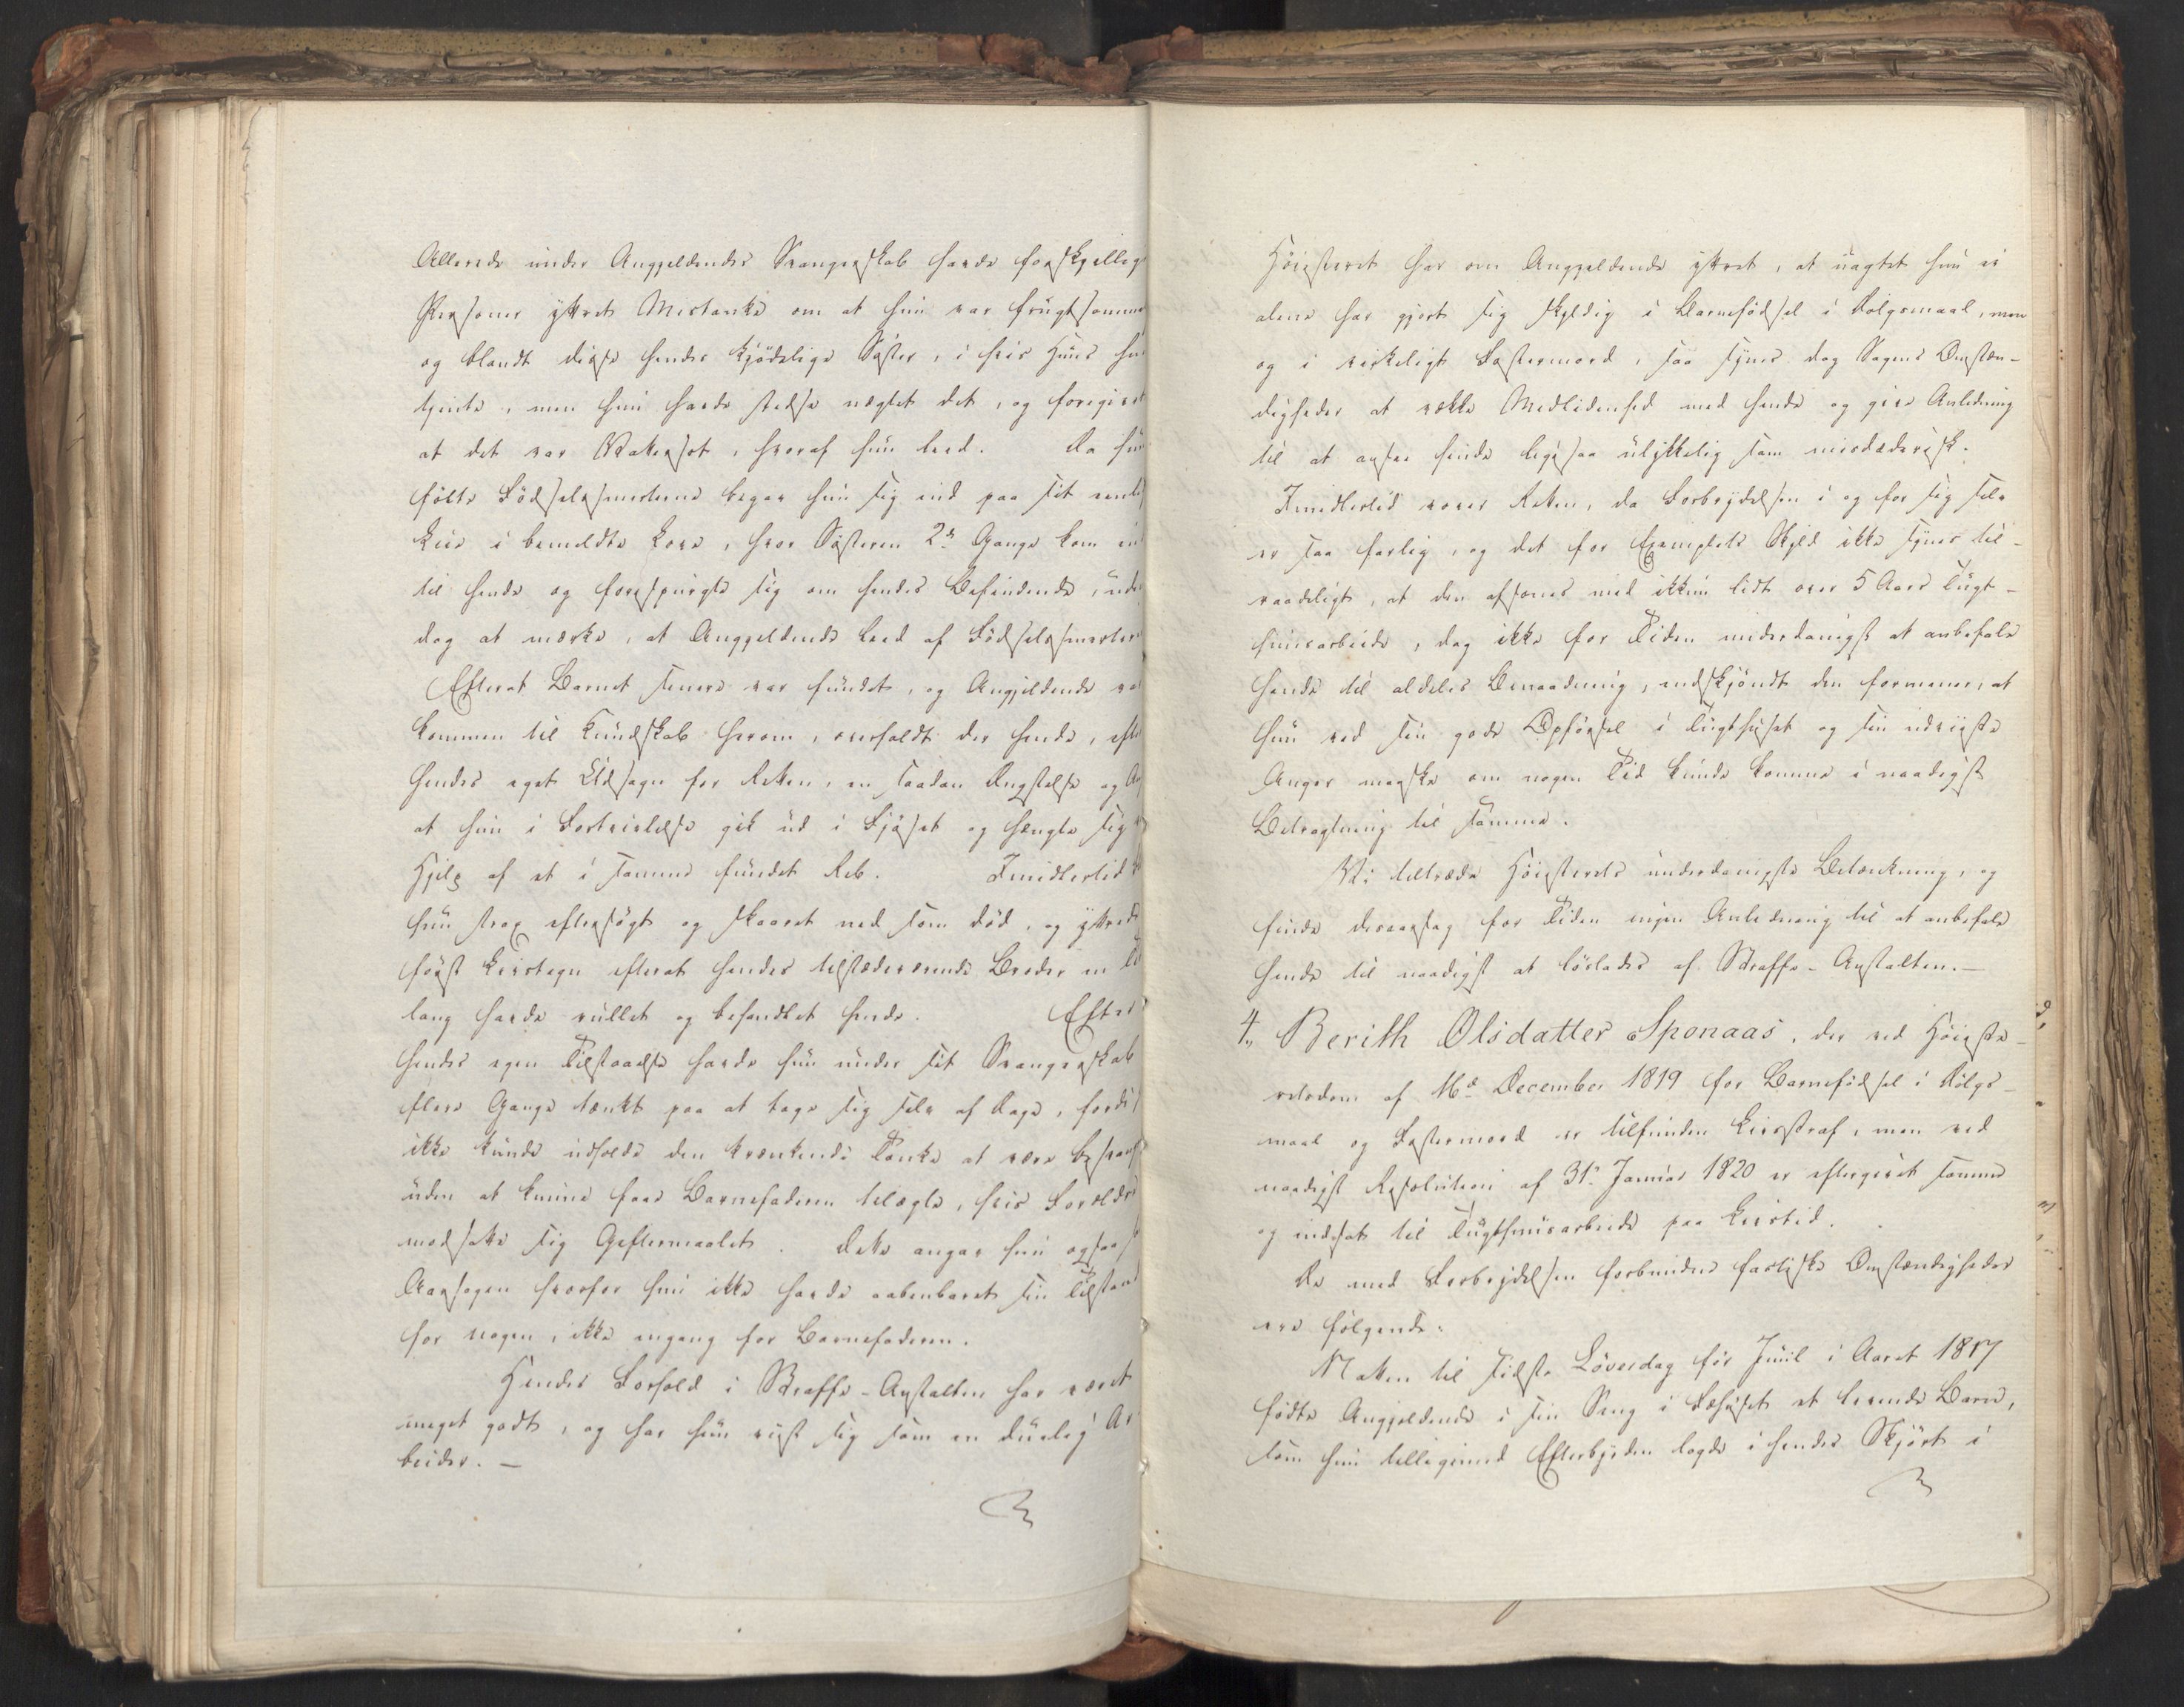 Allerede under Angjeldendes Svangerskab havde forskjellige
Personer yttret Mistanke om at hun var frugtsommelig
og blandt disse hendes kjödelige Söster, i hvis Huus hun
tjente, men hun havde stedse nægtet det, og foregivet
at det var Watersot, hvoraf hun leed. Da hun
fölte Födselssmerterne begav hun sig ind paa sit
Leie i bemeldte Love, hvor Sösteren 2de Gange kom ind
til hende og forespurgte sig om hendes Befindende, uden
dog at mærke, at Angjeldende leed af Födselssmerter
Efterat Barnet senere var fundet, og Angjeldende var
kommen til Kundskab herom, overfaldt der hende, efter
hendes eget Udsagn for Retten, en saadan Ængstelse og
at hun i Fortvivlelse gik ud i Fjöset og hængte sig
Hjelp af et i samme fundet Reb. Imidlertid
hun strax eftersögt og skaaret ned som död, og yttrede
först Livstegn efterat hendes tilstedeværende Broder en
lang havde rullet og behandlet hende. Efter
hendes egen Tilstaaelse havde hun under sit Svangerskab
flere Gange tænkt paa at tage sig selv af Dage, fordi
ikke kunde udholde den krænkende Tanke at være besvangret
uden at kunne faae Barnefaderen til ægte, hvis Forældre
modsatte sig Giftermaalet. Dette angav hun ogsaa
Aarsagen hvorfor hun ikke havde aabenbaret sin Tilstand
for nogen, ikke engang for Barnefaderen.
Hendes Forhold i Straffe-Anstalten har været
meget godt, og har hun viist sig som en duelig Ar
beider. —
Höiesteret har om Angjeldende yttret, at uagtet hun ei
alene har gjort sig skyldig i Barnefödsel i Dölgsmaal, men
og i virkeligt Fostermord, saa synes dog Sagens Omstæn-
digheder at vække Medlidenhed med hende og give Anledning
til at ansee hende ligesaa ulykkelig som misdædersk.
Imidlertid vover Retten, da Forbrydelsen i og for sig selv
er saa farlig, og det for Exemplets Skyld ikke synes til-
raadeligt, at den afsones med ikkun lidt over 5 Aars Tugt-
huusarbeide, dog ikke for Tiden underdanigst at anbefale
hende til aldeles Benaadning, endskjöndt den formener, at
hun ved sin gode Opförsel i Tugthuset og sin udviiste
Anger maaske om nogen Tid kunde komme i naadigst
Betragtning til samme.
Vi tiltræde Höiesterets underdanigste Betænkning, og
finde desaarsag for Tiden ingen Anledning til at anbefale
hende til naadigst at löslades af Straffe-Anstalten.—
4, Berith Olsdatter Sponaas, der ved Höieste-
retsdom af 16de December 1819 for Barnefödsel i Dölgs-
maal og Fostermord er tilfunden Livsstraf, men ved
naadigst Resolution af 31te Januar 1820 er eftergivet samme
og indsat til Tugthuusarbeide paa Livstid.
De med Forbrydelsen forbundne factiske Omstændigheder
ere fölgende:
Natten til sidste Löverdag för Juul i Aaret 1817
födte Angjeldende i sin Seng i Fæhuset et levende Barn,
som hun tilligemed Efterbyrden lagde i hendes Skjört i